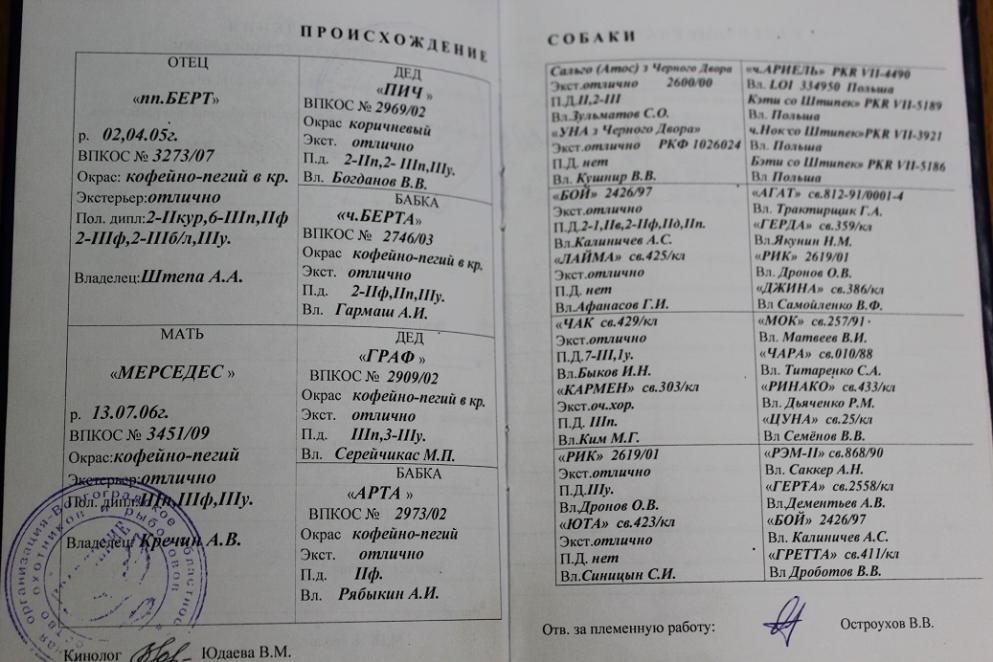 ПРОИСХОЖДЕНИЕ
ОТЕЦ
«пп.БЕРТ»
р. 02,04.05г.
ВПКОС № 3273/07
Окрас: кофейно-пегий в кр.
Экстерьер:отлично
Пол. дипл:2-IIкур,6-IIIп,IIф
2-IIIф,2-IIIб/л,IIIу.
Владелец:Штепа А.А.
МАТЬ
«МЕРСЕДЕС »
р. 13.07.06г.
ВПКОС № 3451/09
Окрас:кофейно-пегий
Экстерьер:отлично
Пол. дипл:IIIп,IIIф,IIIу.
Владелец: Кречин А.В.
Кинолог Юдаева В.М.
ДЕД
«ПИЧ »
ВПКОС № 2969/02
Окрас коричневый
Экст. отлично
П.д. 2-IIп,2- IIIп,IIIу.
Вл. Богданов В.В.
БАБКА
«ч.БЕРТА»
ВПКОС № 2746/03
Окрас кофейно-пегий в кр.
Экст. отлично
П.д. 2-IIф,IIп,IIIу.
Вл. Гармаш А.И.
ДЕД
«ГРАФ »
ВПКОС № 2909/02
Окрас кофейно-пегий в кр.
Экст. отлично
П.д. IIIп,3-IIIу.
Вл. Серейчикас М.П.
БАБКА
«АРТА »
ВПКОС № 2973/02
Окрас кофейно-пегий
Экст. отлично
П.д. IIф.
Вл. Рябыкин А.И.
СОБАКИ
Сальго (Атос) з Черного Двора
Экст.отлично 2600/00
П.Д.II,2-III
Вл.Зульматов С.О.
«УНА з Черного Двора»
Экст.отлично РКФ 1026024
П.Д. нет
Вл. Кушнир В.В.
«БОЙ» 2426/97
Экст.отлично
П.Д.2-1,IIв,2-IIф,IIд,IIп.
Вл.Калиничев А.С.
«ЛАЙМА» св.425/кл
Экст.отлично
П.Д. нет
Вл.Афанасов Г.И.
«ЧАК св.429/кл
Экст.отлично
П.Д.7-III,1у.
Вл.Быков И.Н.
«КАРМЕН» св.303/кл
Экст.оч.хор.
П.Д. IIIп.
Вл.Ким М.Г.
«РИК» 2619/01
Экст.отлично
П.Д.IIIу.
Вл.Дронов О.В.
«ЮТА» св.423/кл
Экст.отлично
П.Д. нет
Вл.Синицын С.И.
«ч.АРИЕЛЬ» PKR VII-4490
Вл. LOI 334950 Польша
Кэти со Штипек» PKR VII-5189
Вл. Польша
ч.Нок со Штипек»PKR VII-3921
Вл. Польша
Бэти со Штипек» PKR VII-5186
Вл Польша
«АГАТ» св.812-91/0001-4
Вл. Трактирщик Г.А.
«ГЕРДА» св.359/кл
Вл.Якунин Н.М.
«РИК» 2619/01
Вл. Дронов О.В.
«ДЖИНА» св.386/кл
Вл Самойленко В.Ф.
«МОК» св.257/91
Вл. Матвеев В.И.
«ЧАРА» св.010/88
Вл. Титаренко С.А.
«РИНАКО» св.433/кл
Вл. Дьяченко Р.М.
«ЦУНА» св.25/кл
Вл Семёнов В.В.
«РЭМ-II» св.868/90
Вл. Саккер А.Н.
«ГЕРТА» св.2558/кл
Вл.Дементьев А.В.
«БОЙ» 2426/97
Вл. Калиничев А.С.
«ГРЕТТА» св.411/кл
Вл Дроботов В.В.
Отв. за племенную работу: Остроухов В.В.